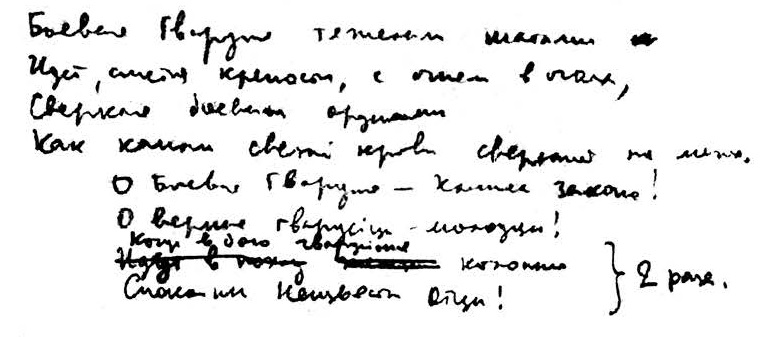 Боевая Гвардия тяжелыми шагами
Идет, сметая крепости, с огнем в очах,
Сверкая боевыми орденами
Как капли светлой крови сверкают на мечах.
О Боевая Гвардия – закона!
О верные гвардейцы-молодцы!
Когда в бою гвардейские
Идут в поход колонны
Спокойны отцы!
} 2 раза.